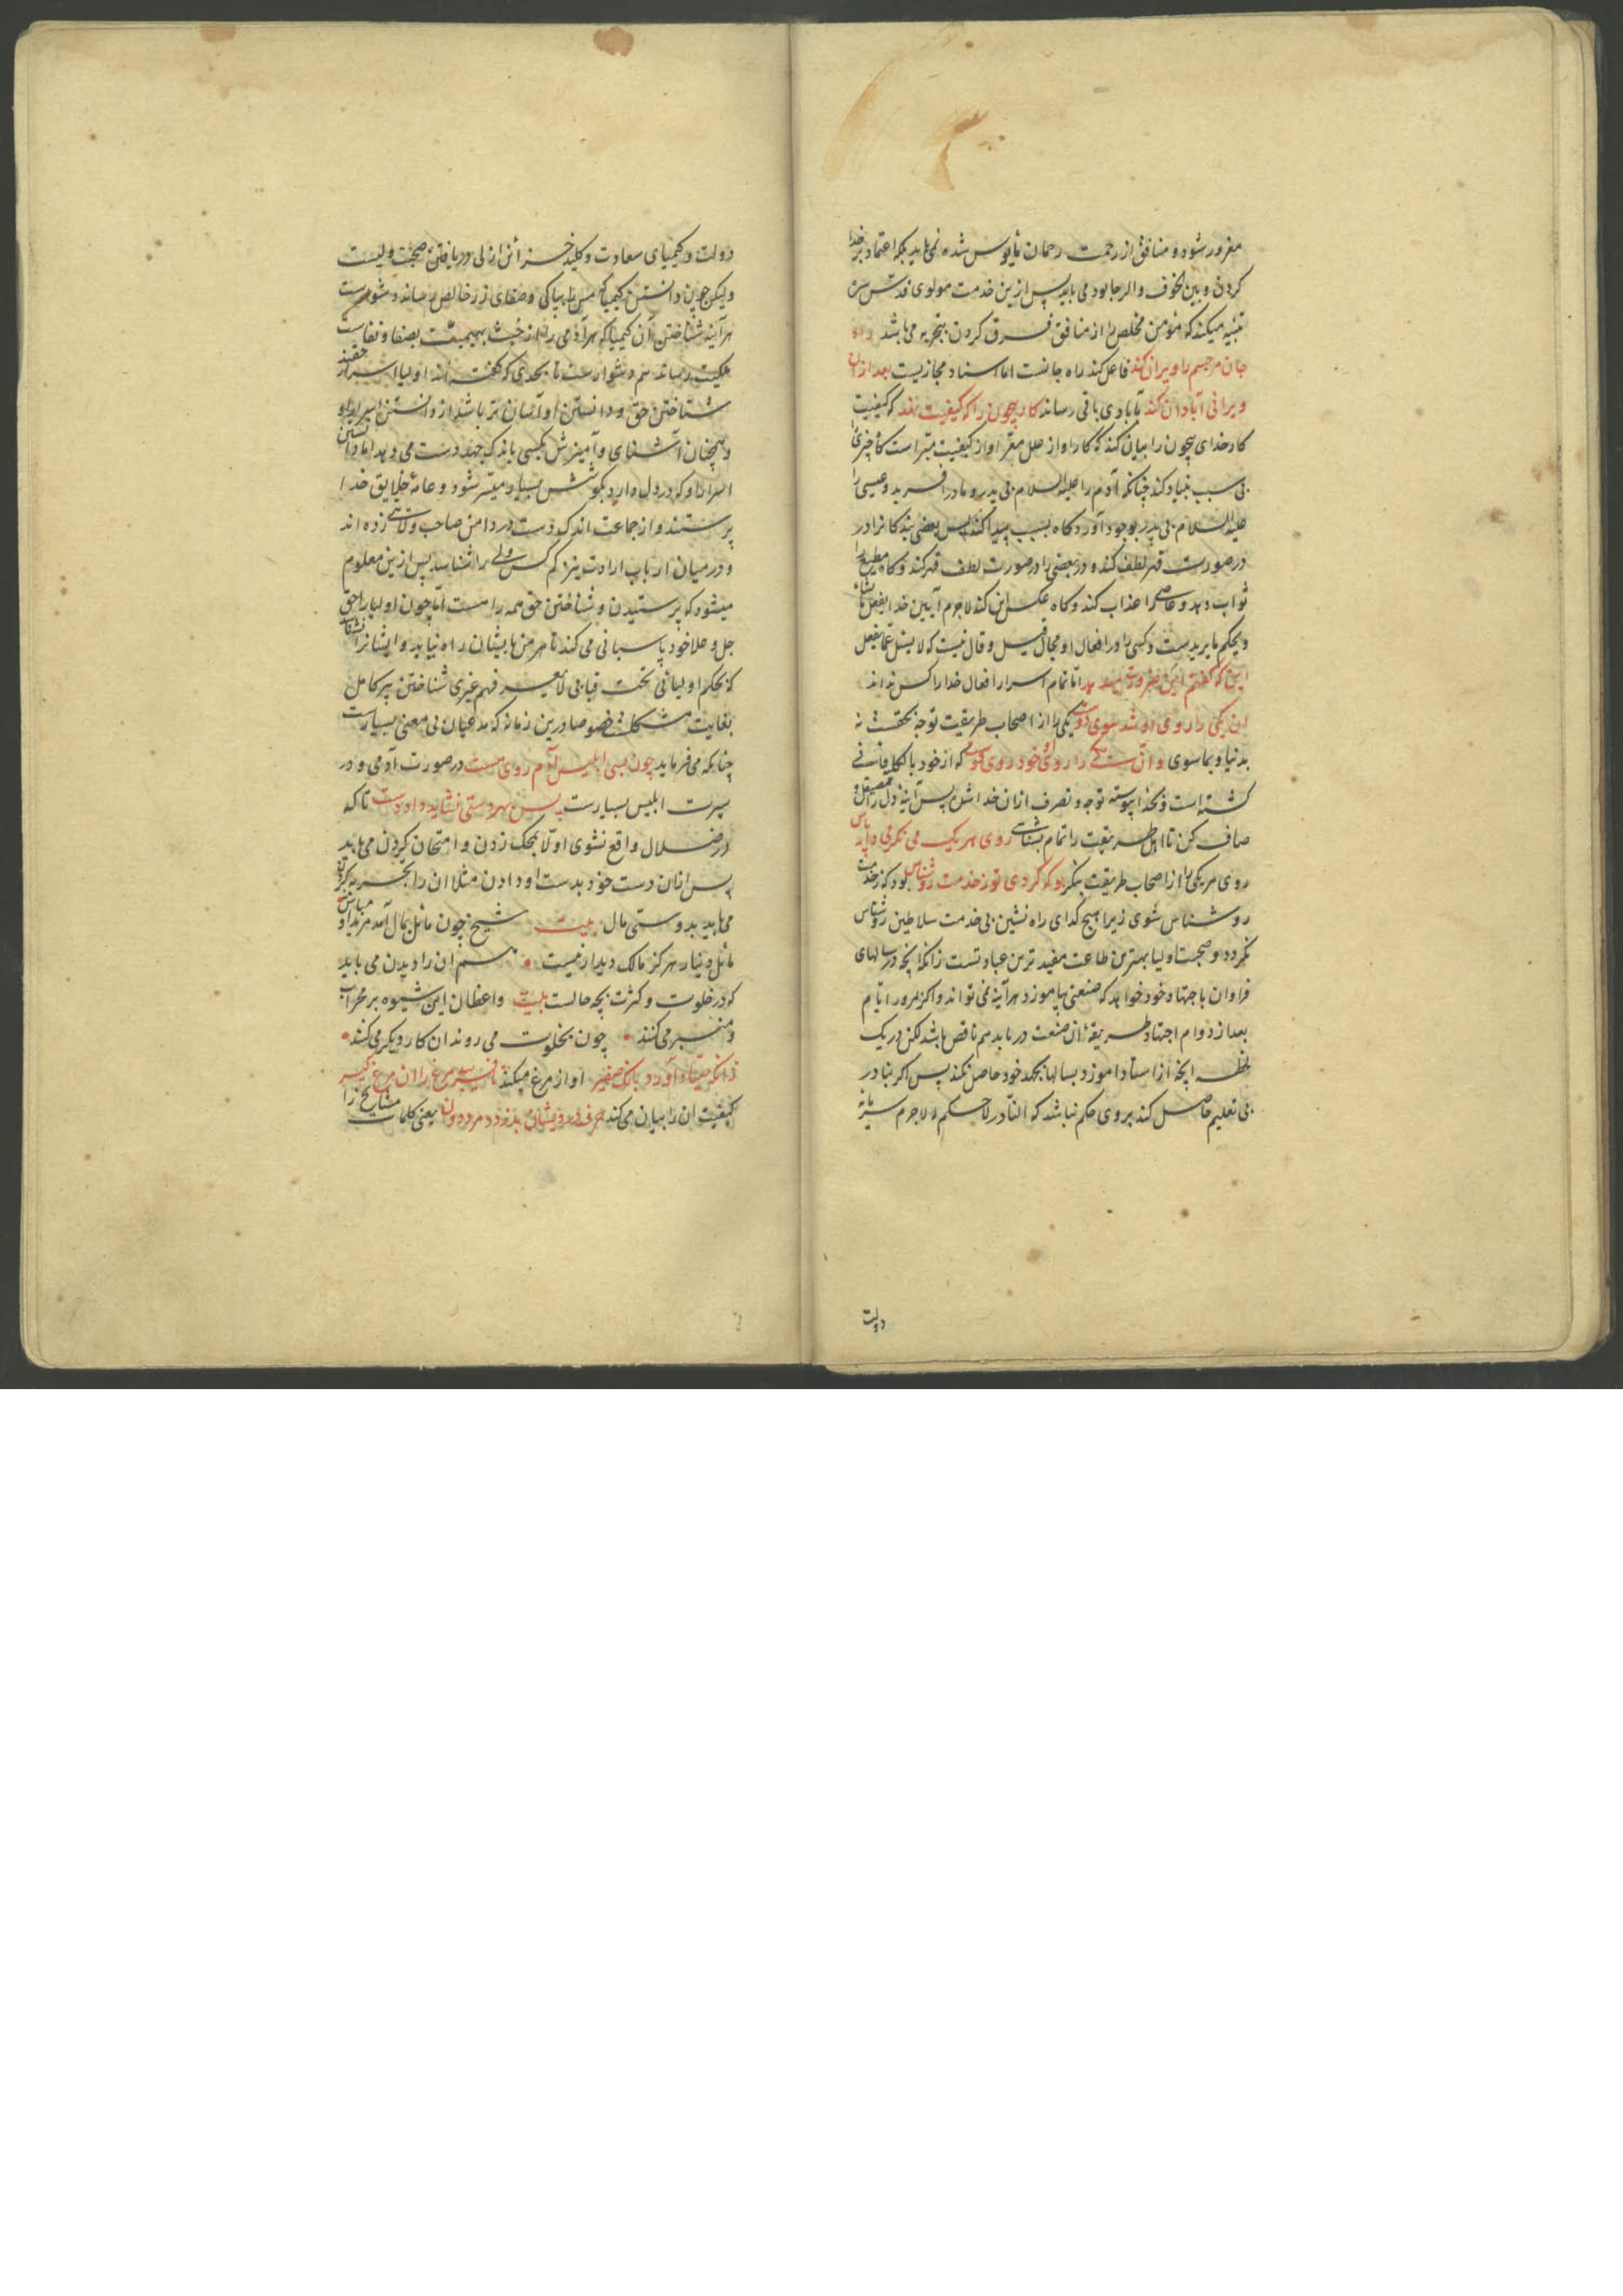 مغرور شود و منافق از رحمت رحمان مأیوس شده نمی باید بلکه اعتماد بر خدا
کردن و بین الخوف و الرجا بود می باید پس ازین خدمت مولوی قدس سره
تنبیه میکند که مؤمن مخلص را از منافق فرق کردن بتجربه می باشد راه
جان مر جسم را ویران کند فاعل کند راه جانست اما اسناد مجازیست بعد از ان
ویرانی آبادان کند تا بادی باقی رساند کار بیچون را که کیفیت نهد که کیفیت
کار خدای بیچون را بیان کند که کار او از علل معرا و از کیفیت مبراست گاه چیزی را
بی سبب بنیاد کند چنانکه آدم را علیه السلام بی پدر و مادر آفرید و عیسی را
علیه السلام بی پدر بوجود آورد و گاه بسبب پیدا کند پس بعضی بندگانرا در
در صورت قهر لطف کند و در بعضی را در صورت لطف قهر کند و گاه مطیع را
ثواب دهد و عاصی را عذاب کند و گاه عکس این کند لاجرم آیین خدا یفعل ما یشاء
و یحکم ما یریدست و کسی را در افعال او مجال قیل و قال نیست که لا یسئل عما یفعل
این که گفتم این ضرورت میدهد اما تمام اسرار افعال خدا را کس نداند
ان یکی را روی او شد سوی دوست یکی را از اصحاب طریقت توجه بحقست نه
بدنیا و بماسوی و آن یکی را روی او خود روی دوست که از خود بالکل فانی
گشته است و بخدا پیوسته توجه و تصرف ازان خدا شد پس آینه دل را صیقل و
صاف کن تا اهل طریقت را تمام بشناسی روی هر یک می نگر می دار پاس
روی هر یکی را از اصحاب طریقت بنگر بو که گردی تو ز خدمت روشناس بود که ز خدمت
روشناس شوی زیرا هیچ گدای راه نشین بی خدمت سلاطین روشناس
نگردد و صحبت اولیا بهترین طاعت مفیدترین عبادتست زانکه آنچه در سالهای
فراوان باجتهاد خود خواهد که صنعتی بیاموزد هرآینه نمی تواند و اگر بمرور ایام
بعد از دوام اجتهاد طریقهٔ ان صنعت دریابد هم ناقص باشد لکن در یک
لحظه آنچه از استاد آموزد بسالها بجهد خود حاصل نکند پس اگر بنادر
بی تعلیم حاصل کند بروی حکم نباشد که النادر لا حکم له لاجرم سرمایه
دولت
دولت و کیمیای سعادت و کلید خزائن ازلی دریافتن صحبت ولیست
ولیکن چون دانستن کیمیا که مس را بپاکی و صفای زر خالص رساند دشوارست
هرآینه شناختن آن کیمیا که هر آدمی را از خبث بهیمیت بصفا و نفاست
ملکیت رساند هم دشوارست تا بحدی که گفته اند اولیا اسرار حقند
شناختن حق و دانستن او آسان تر باشد از دانستن اسرار او
و همچنان آشنای و آمیزش بکسی باندک جهد دست می دهد اما دانستن
اسرار او که در دل دارد بکوشش بسیار میسر شود و عامهٔ خلایق خدا
پرستند و از جماعت اندک دست در دامن صاحب ولایتی زده اند
و در میان ارباب ارادت نیز کم کس ولی را شناسد پس ازین معلوم
میشود که پرستیدن و شناختن حق همه را هست اما چون اولیا را حق
جل و علا خود پاسبانی می کند تا هر من بایشان راه نیابد و ایشانرا نشناسد
که بحکم اولیائی تحت قبابی لا یعرفهم غیری شناختن پیر کامل
بغایت مشکلست خصوصا درین زمانه که مدعیان بی معنی بسیارست
چنانکه می فرماید چون بسی ابلیس آدم روی هست در صورت آدمی و در
سیرت ابلیس بسیارست پس بهر دستی نشاید داد دست تا که
در ضلال واقع نشوی اولا بمحک زدن و امتحان کردن می باید
پس از ان دست خود بدست او دادن مثلا ان را تجربه کردن
می باید بدوستی مال بیت شیخ چون مائل بمال آمد مرید او مباش
مائل دینار هرگز مالک دیدار نیست هم ان را دیدن می باید
که در خلوت و کثرت بچه حالست بیت واعظان این شیوه بر محراب
و منبر می کنند چون بخلوت می روند ان کار دیگر می کنند
زانکه صیاد آورد بانگ صفیر اواز مرغ میکند تا فریبد مرغ را ان مرغ گیر
کیفیت ان را بیان می کند حرف درویشان بدزدد مرد دون یعنی کلمات مشایخ را